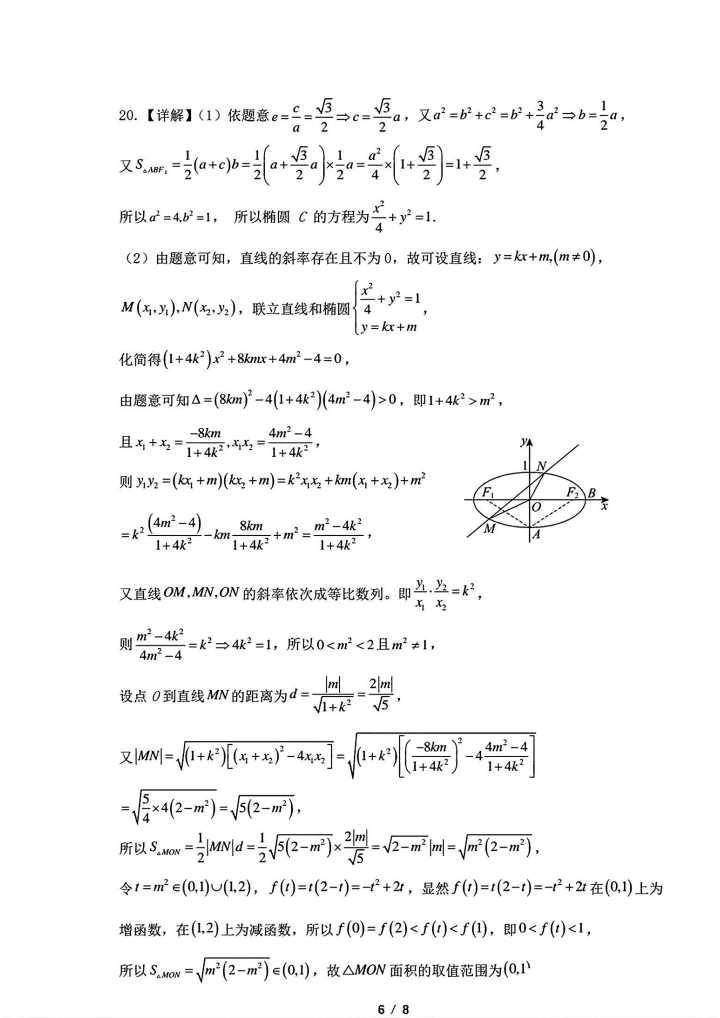 20.【详解】(1) 依题意 e = c/a = √3/2 ⇒ c = √3/2 a，又 a² = b² + c² = b² + 3/4 a² ⇒ b = 1/2 a，
又 S△ABF₂ = 1/2 (a+c)b = 1/2 (a + √3/2 a) × 1/2 a = a²/4 × (1 + √3/2) = 1 + √3/2，
所以 a² = 4, b² = 1， 所以椭圆 C 的方程为 x²/4 + y² = 1.
（2）由题意可知，直线的斜率存在且不为 0，故可设直线：y = kx + m, (m ≠ 0)，
M(x₁, y₁), N(x₂, y₂)，联立直线和椭圆 { x²/4 + y² = 1, y = kx + m，
化简得 (1+4k²)x² + 8kmx + 4m² − 4 = 0，
由题意可知 Δ = (8km)² − 4(1+4k²)(4m² − 4) > 0，即 1+4k² > m²，
且 x₁ + x₂ = −8km/(1+4k²), x₁x₂ = (4m² − 4)/(1+4k²)，
则 y₁y₂ = (kx₁ + m)(kx₂ + m) = k²x₁x₂ + km(x₁ + x₂) + m²
= k² (4m² − 4)/(1+4k²) − km 8km/(1+4k²) + m² = (m² − 4k²)/(1+4k²)，
y
1
N
F₁
F₂
B
O
x
M
A
又直线 OM, MN, ON 的斜率依次成等比数列。即 y₁/x₁ · y₂/x₂ = k²，
则 (m² − 4k²)/(4m² − 4) = k² ⇒ 4k² = 1，所以 0 < m² < 2 且 m² ≠ 1，
设点 O 到直线 MN 的距离为 d = |m|/√(1+k²) = 2|m|/√5，
又 |MN| = √((1+k²)[(x₁ + x₂)² − 4x₁x₂]) = √((1+k²)[(−8km/(1+4k²))² − 4 (4m² − 4)/(1+4k²)])
= √(5/4 × 4(2 − m²)) = √(5(2 − m²))，
所以 S△MON = 1/2 |MN| d = 1/2 √(5(2 − m²)) × 2|m|/√5 = √(2 − m²) |m| = √(m²(2 − m²))，
令 t = m² ∈ (0,1)∪(1,2)，f(t) = t(2 − t) = −t² + 2t，显然 f(t) = t(2 − t) = −t² + 2t 在 (0,1) 上为
增函数，在 (1,2) 上为减函数，所以 f(0) = f(2) < f(t) < f(1)，即 0 < f(t) < 1，
所以 S△MON = √(m²(2 − m²)) ∈ (0,1)，故 △MON 面积的取值范围为 (0,1)
6 / 8